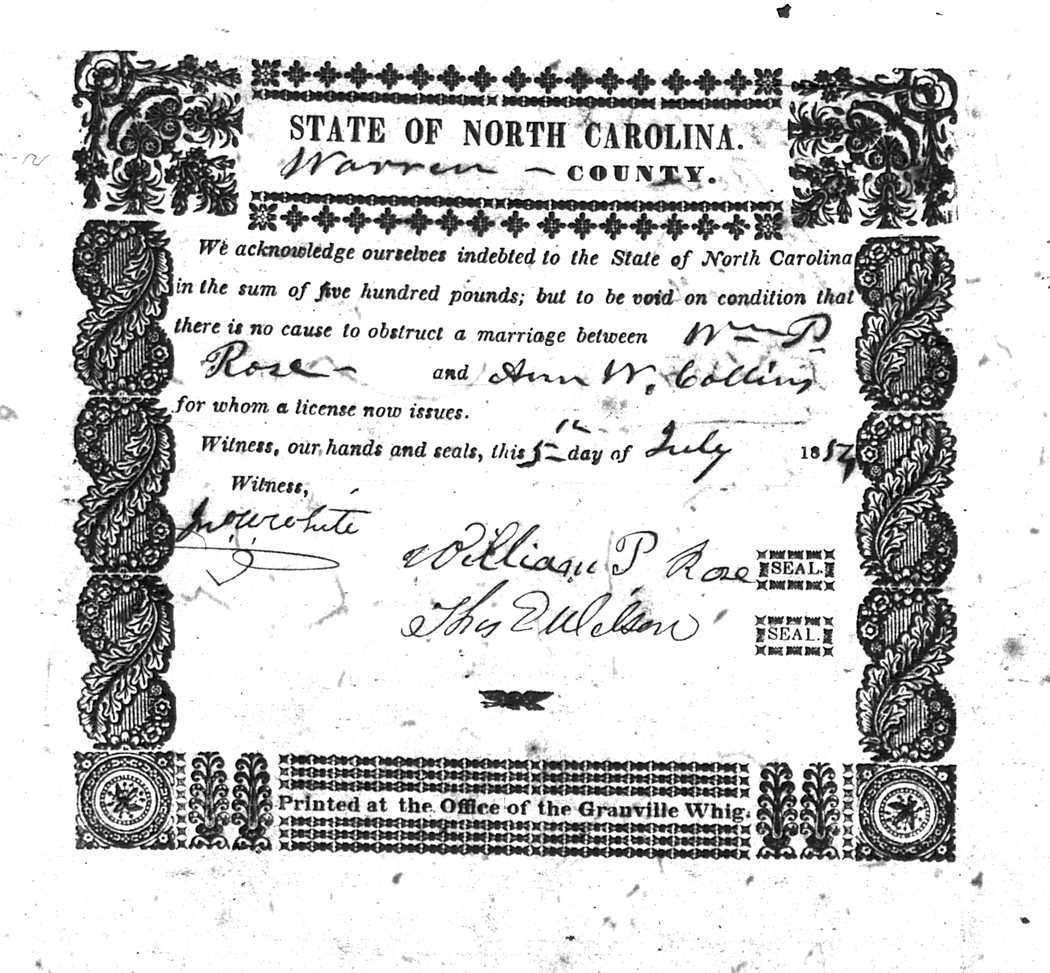 STATE OF NORTH CAROLINA.
Warren - COUNTY.
We acknowledge ourselves indebted to the State of North Carolina
in the sum of five hundred pounds; but to be void on condition that
there is no cause to obstruct a marriage between Wm P
Rose - and Ann W. Collins
for whom a license now issues.
Witness, our hands and seals, this 5th day of July 1854
Witness,
Jno W White
William P Rose SEAL.
Thos SEAL.
Printed at the Office of the Granville Whig.